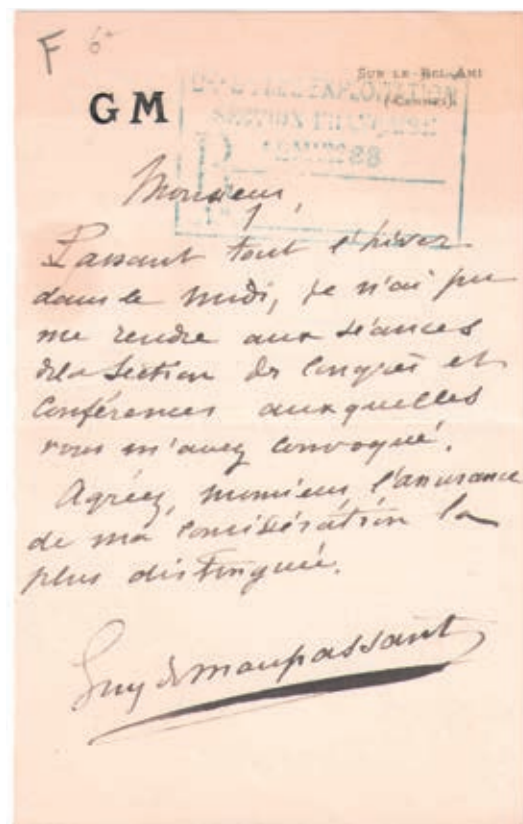 F 6
SUR LE BEL-AMI
(CANNES).
GM
EXPLOITATION
SECTION FRANÇAISE
88
Monsieur,
Passant tout l'hiver
dans le midi, je n'ai pu
me rendre aux séances
de la Section des Congrès et
Conférences auxquelles
vous m'avez convoqué.
Agréez, monsieur, l'assurance
de ma considération la
plus distinguée.
Guy de Maupassant